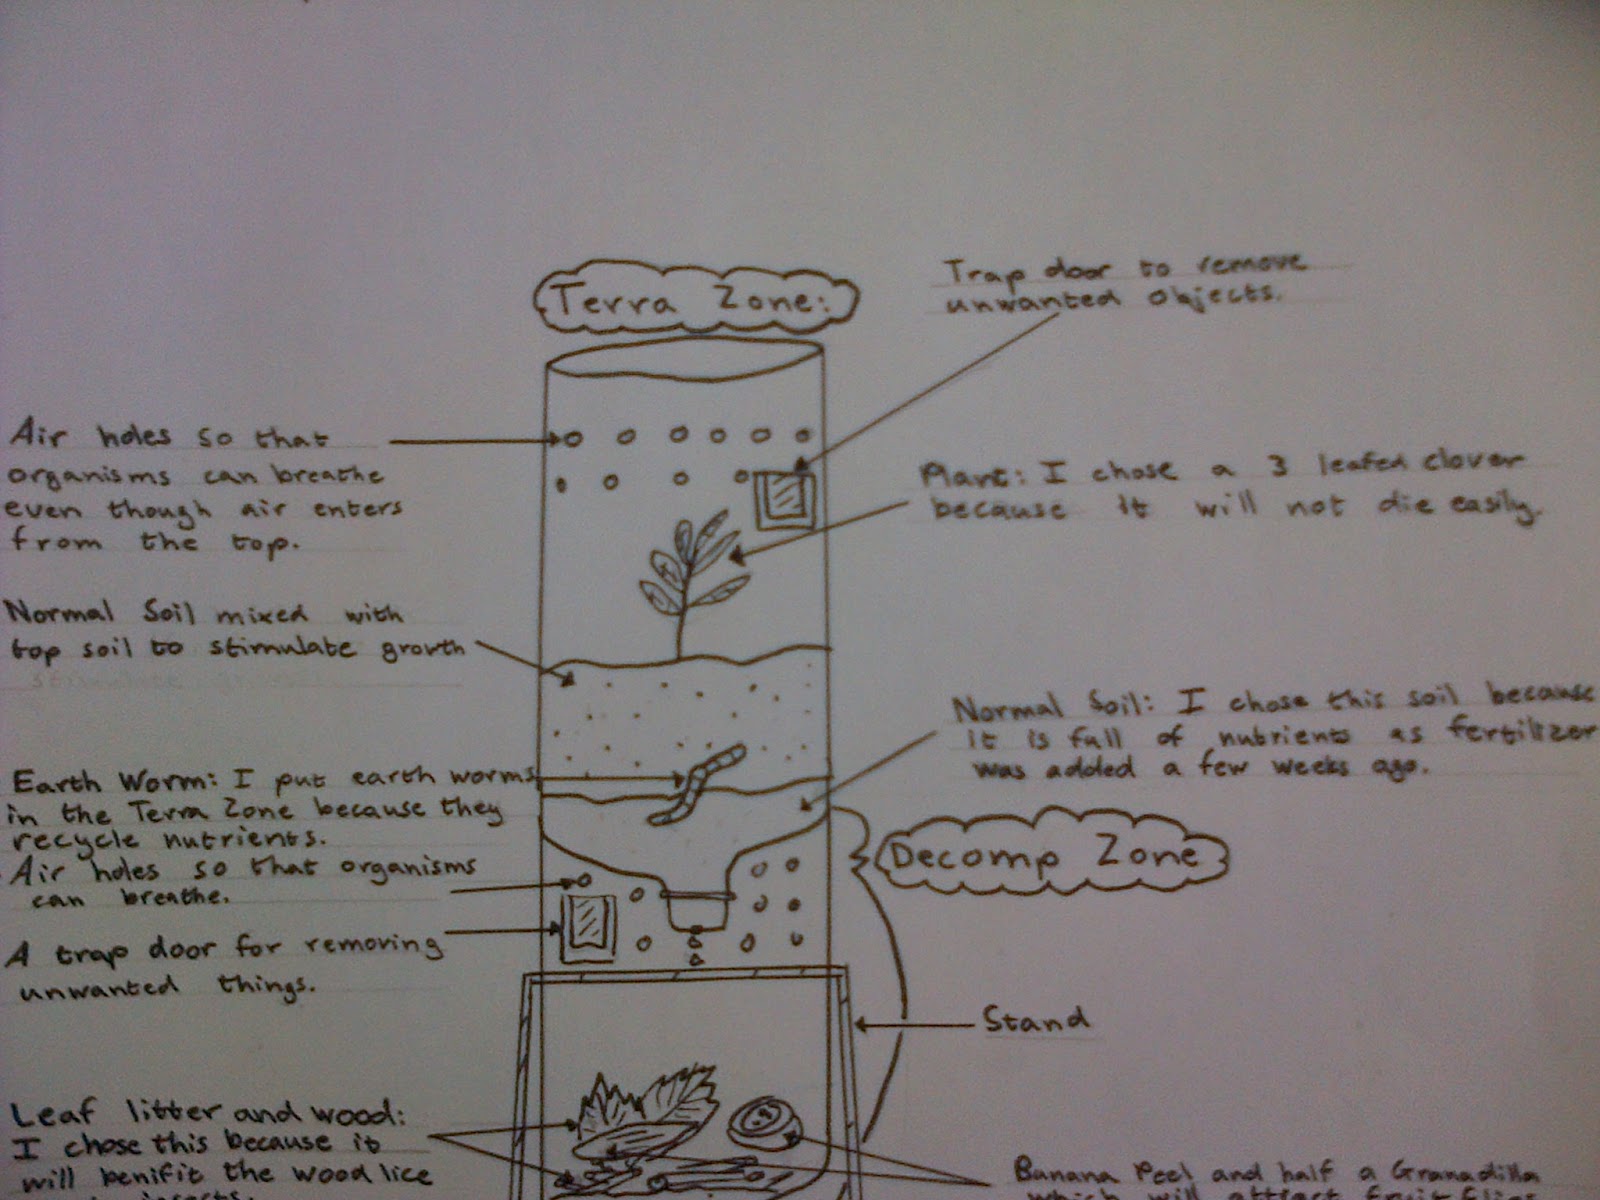 Terra Zone:
Trap door to remove
unwanted objects.
Air holes so that
organisms can breathe
even though air enters
from the top.
Plant: I chose a 3 leafed clover
because it will not die easily.
Normal Soil mixed with
top soil to stimulate growth
Normal Soil: I chose this soil because
it is full of nutrients as fertilizer
was added a few weeks ago.
Earth Worm: I put earth worms
in the Terra Zone because they
recycle nutrients.
Air holes so that organisms
can breathe.
Decomp Zone
A trap door for removing
unwanted things.
Stand
Leaf litter and wood:
I chose this because it
will benifit the wood lice
insects.
Banana Peel and half a Granadilla
which will attract fruit flies